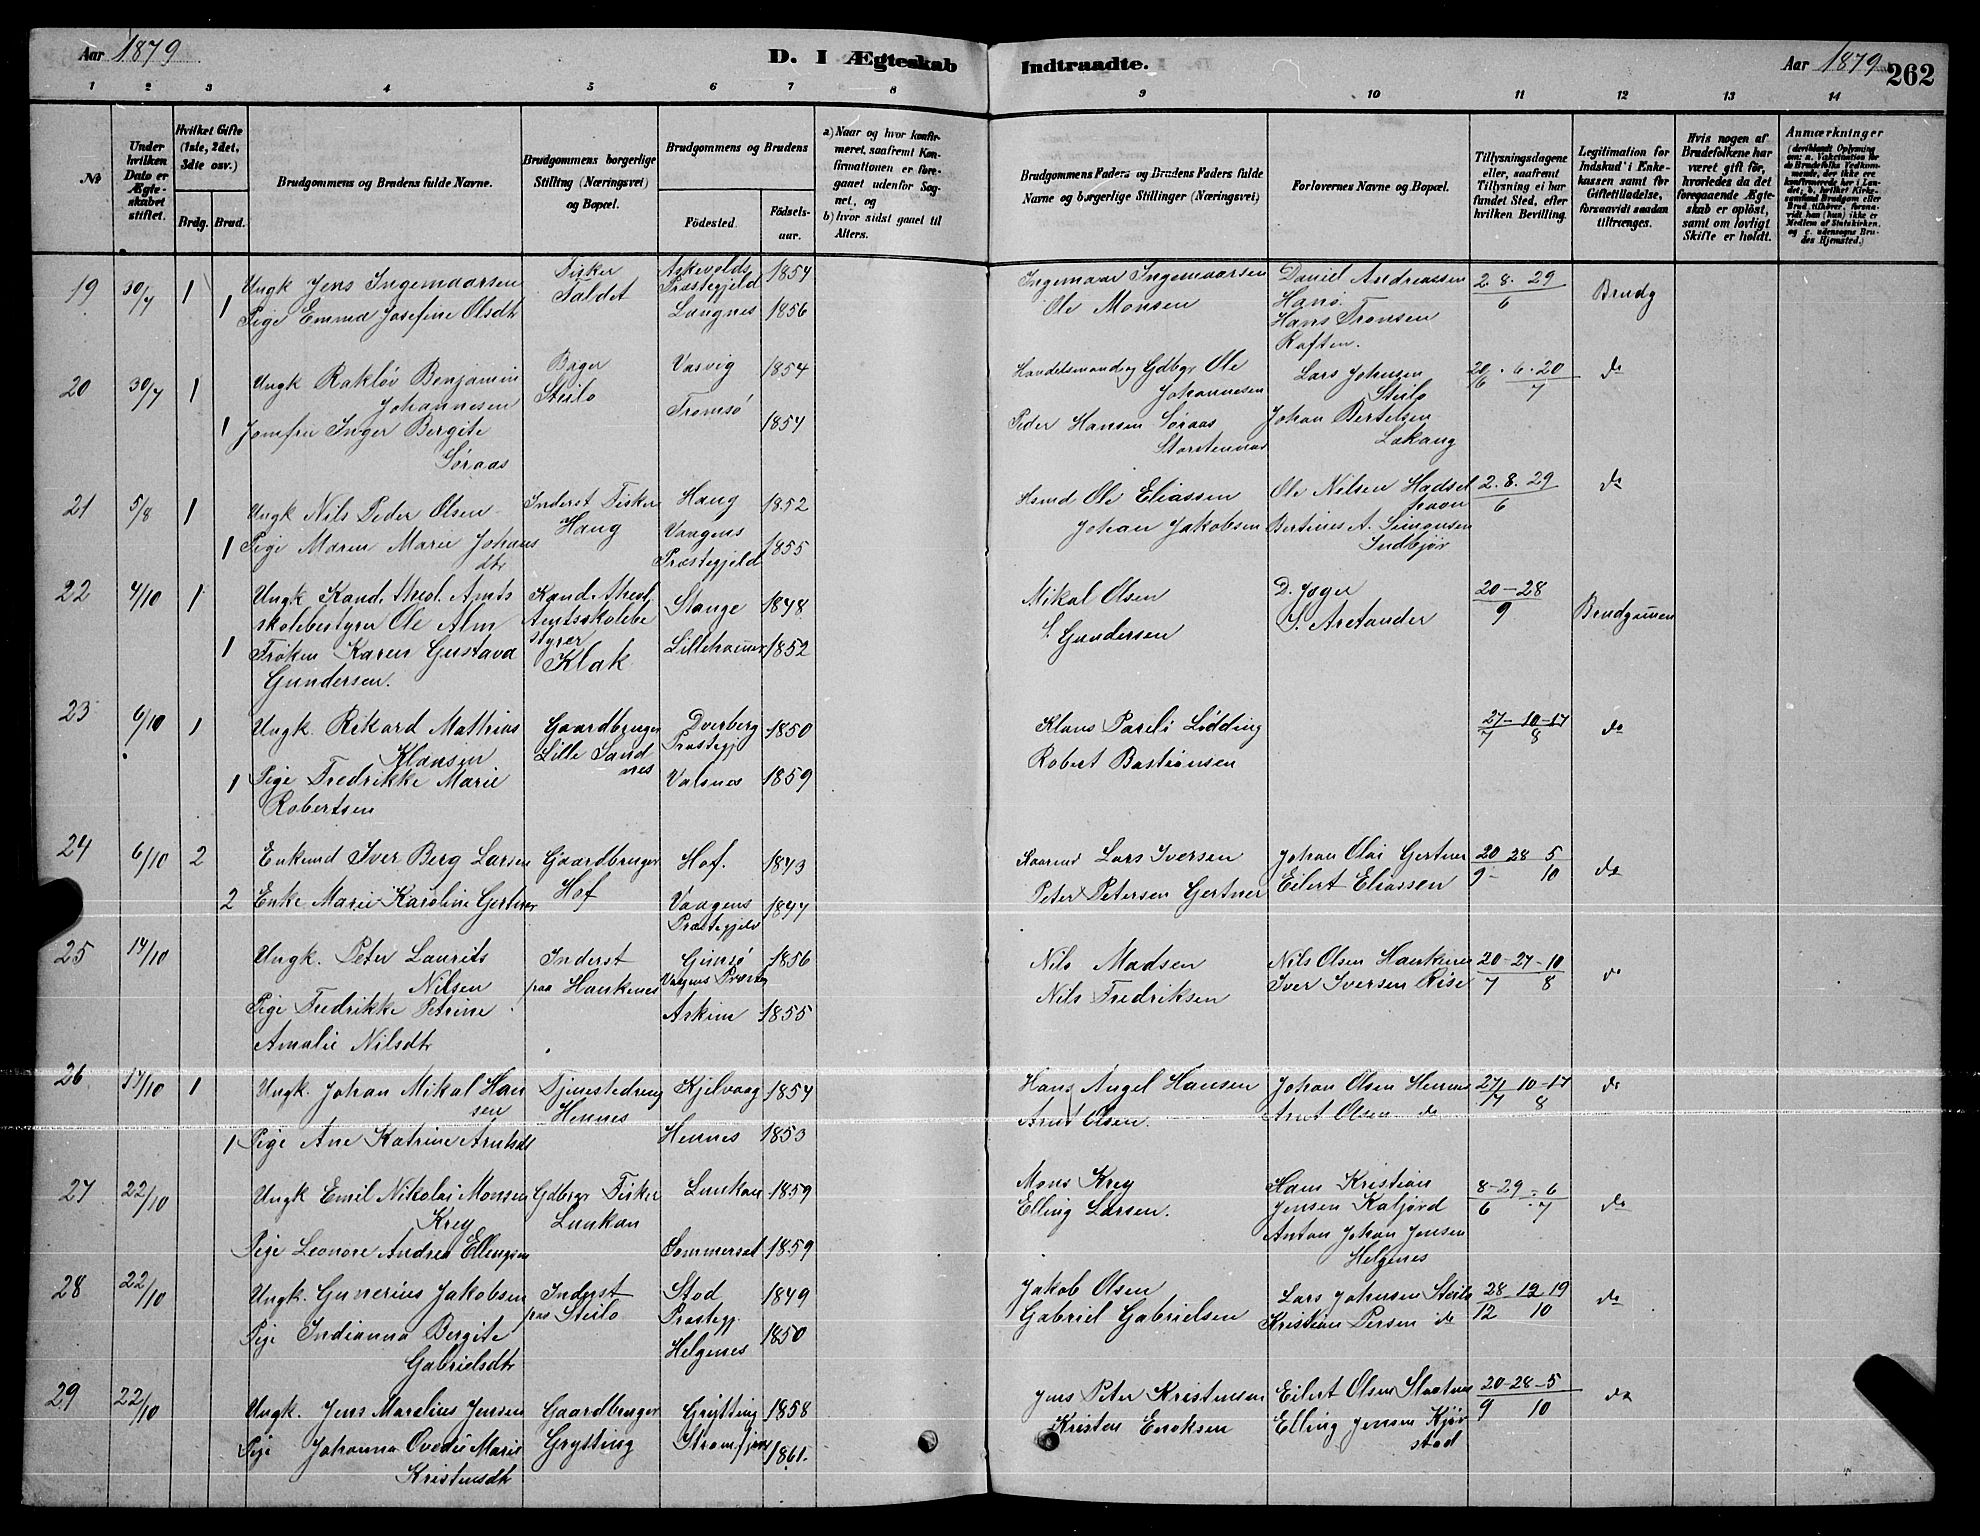 Aar 1879
D. I Ægteskab
Indtraadte.
Aar 1879
262
1 2 3 4 5 6 7 8 9 10 11 12 13 14
No
Under hvilken Dato er Ægteskabet stiftet.
Hvilket Gifte (1ste, 2det, 3dte osv.)
Brdg. Brud.
Brudgommens og Brudens fulde Navne.
Brudgommens borgerlige Stilling (Næringsvei) og Bopæl.
Brudgommens og Brudens
Födested.
Födselsaar.
a) Naar og hvor konfirmeret, saafremt Konfirmationen er foregaaet udenfor Sognet, og
b) hvor sidst gaaet til Alters.
Brudgommens Faders og Brudens Faders fulde Navne og borgerlige Stillinger (Næringsvei)
Forlovernes Navne og Bopæl.
Tillysningsdagene eller, saafremt Tillysning ei har fundet Sted, efter hvilken Bevilling.
Legitimation for Indskud i Enkekassen samt for Giftetilladelse, forsaavidt saadan tiltrænges.
Hvis nogen af Brudefolkene har været gift för, hvorledes da det foregaaende Ægteskab er oplöst, samt om lovligt Skifte er holdt.
Anmærkninger
(deriblandt Oplysning om: a. Vakcination for de Brudefolks Vedkommende, der ikke ere konfirmerede her i Landet, b. hvilket Kirkesamfund Brudgom eller Brud tilhörer, forsaavidt han (hun) ikke er Medlem af Statskirken, og c. udensogns Brudes Hjemsted.)
19 30/7 1 Ungk Jens Ingemaarsen Fisker Askevolds Præstegjeld 1854 Ingemaar Ingemaarsen Daniel Andreassen 2. 8. 29 / 6 Brudg
1 Pige Emma Josefine Olsdt Faldet Langnes 1856 Ole Monsen Hans Tronsen
Raften.
20 30/7 1 Ungk Rakløv Benjamin Johannesen Bager Steilo Vasvig 1854 Handelsmand og Gdbgr Ole Johannesen Lars Johnsen Steilo 20/6 . 6 . 20 / 7 do
1 Jomfru Inger Bergite Søraas Tromsø 1854 Peder Hansen Søraas Johan Bertelsen Lokang
21 5/8 1 Ungk Nils Peder Olsen Inderst Fisker Haug Haug 1852 Ole Eliassen Ole Nilsen Hadsel havn 2. 8. 29 / 6 do
1 Pige Maren Marie Johans dtr Vaagens Præstegjeld 1855 Johan Jakobsen Bertines A. Simonsen Indbjør
22 4/10 1 Ungk Kand. theol. Amts skolebestyrer Ole Alm Kand. theol. Amtsskolebe styrer Klak Stange 1848 Mikal Olsen D. Joger 20 - 28 / 9 Brudgommen
1 Frøken Karen Gustava Gundersen. Lillehammer 1852 S. Gundersen S. Aretander
23 6/10 1 Ungk. Rikard Mathias Klausen Gaardbruger Lille Sand nes Dverberg Præstegj 1850 Klaus Pareli Lødding 27 - 10 - 17 / 7 8 do
1 Pige Fredrikke Marie Robertsen Valsnes 1859 Robert Bastiansen
24 6/10 2 Enkemd Iver Berg Larsen Gaardbruger Hof Hof. 1843 Lars Iversen Johan Olai Gertner 20 28 5 / 9 - 10 do
2 Enke Marie Karoline Gertner Vaagens Præstegjeld 1844 Peter Petersen Gertner Eilert Eliassen
25 14/10 Ungk. Peter Laurits Nilsen Inderst paa Haukenes Gimsø Vaagens Præstegj 1856 Nils Madsen Nils Olsen Haukenes 20 - 27 - 10 / 7 8 do
Pige Fredrikke Petrine Amalie Nilsdtr Askim 1855 Nils Fredriksen Iver Iversen Rise
26 17/10 1 Ungk. Johan Mikal Han sen Tjenestedreng Hennes Kjelvaag 1854 Hans Angel Hansen Johan Olsen Hennes 27/7 10 - 17 / 8 do
1 Pige Ane Katrine Arntsdt Hennes 1853 Arnt Olsen. Arnt Olsen do
27 22/10 Ungk Emil Nikolai Monsen Krey Gdbrgr Fisker Lunkan Lunkan 1859 Mons Krey Hans Kristian Jensen Kalfjord 8 - 29 - 6 / 6 7 do
Pige Leonore Andrea Ellingsen Sommerset 1859 Elling Larsen. Anton Johan Jensen Helgenes
28 22/10 Ungk. Gunerius Jakobsen Inderst paa Steilo Stod Præstegj. 1849 Jakob Olsen Lars Johnsen Steilo 28 12 19 / 12 10 do
Pige Indianna Bergite Gabrielsdtr Helgenes 1850 Gabriel Gabrielsen Kristian Persen do
29 22/10 Ungk. Jens Marelius Jensen Gaardbruger Grytting Grytting 1858 Jens Peter Kristensen Eilert Olsen 20 - 28 - 5 / 9 10 do
Pige Johanna Ovedie Marie Kristensdtr 1861. Kristen Enoksen Elling Jensen Kjør stad